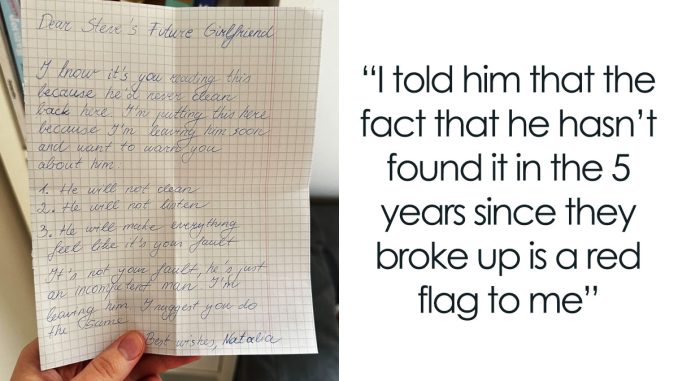 Dear Steve's Future Girlfriend
I know it's you reading this
because he'd never clean
back here. I'm putting this here
because I'm leaving him soon
and want to warn you
about him:
1. He will not clean
2. He will not listen
3. He will make everything
feel like it's your fault
It's not your fault, he's just
an incompetent man. I'm
leaving him. I suggest you do
the same.
Best wishes, Natalia
“I told him that the
fact that he hasn’t
found it in the 5
years since they
broke up is a red
flag to me”